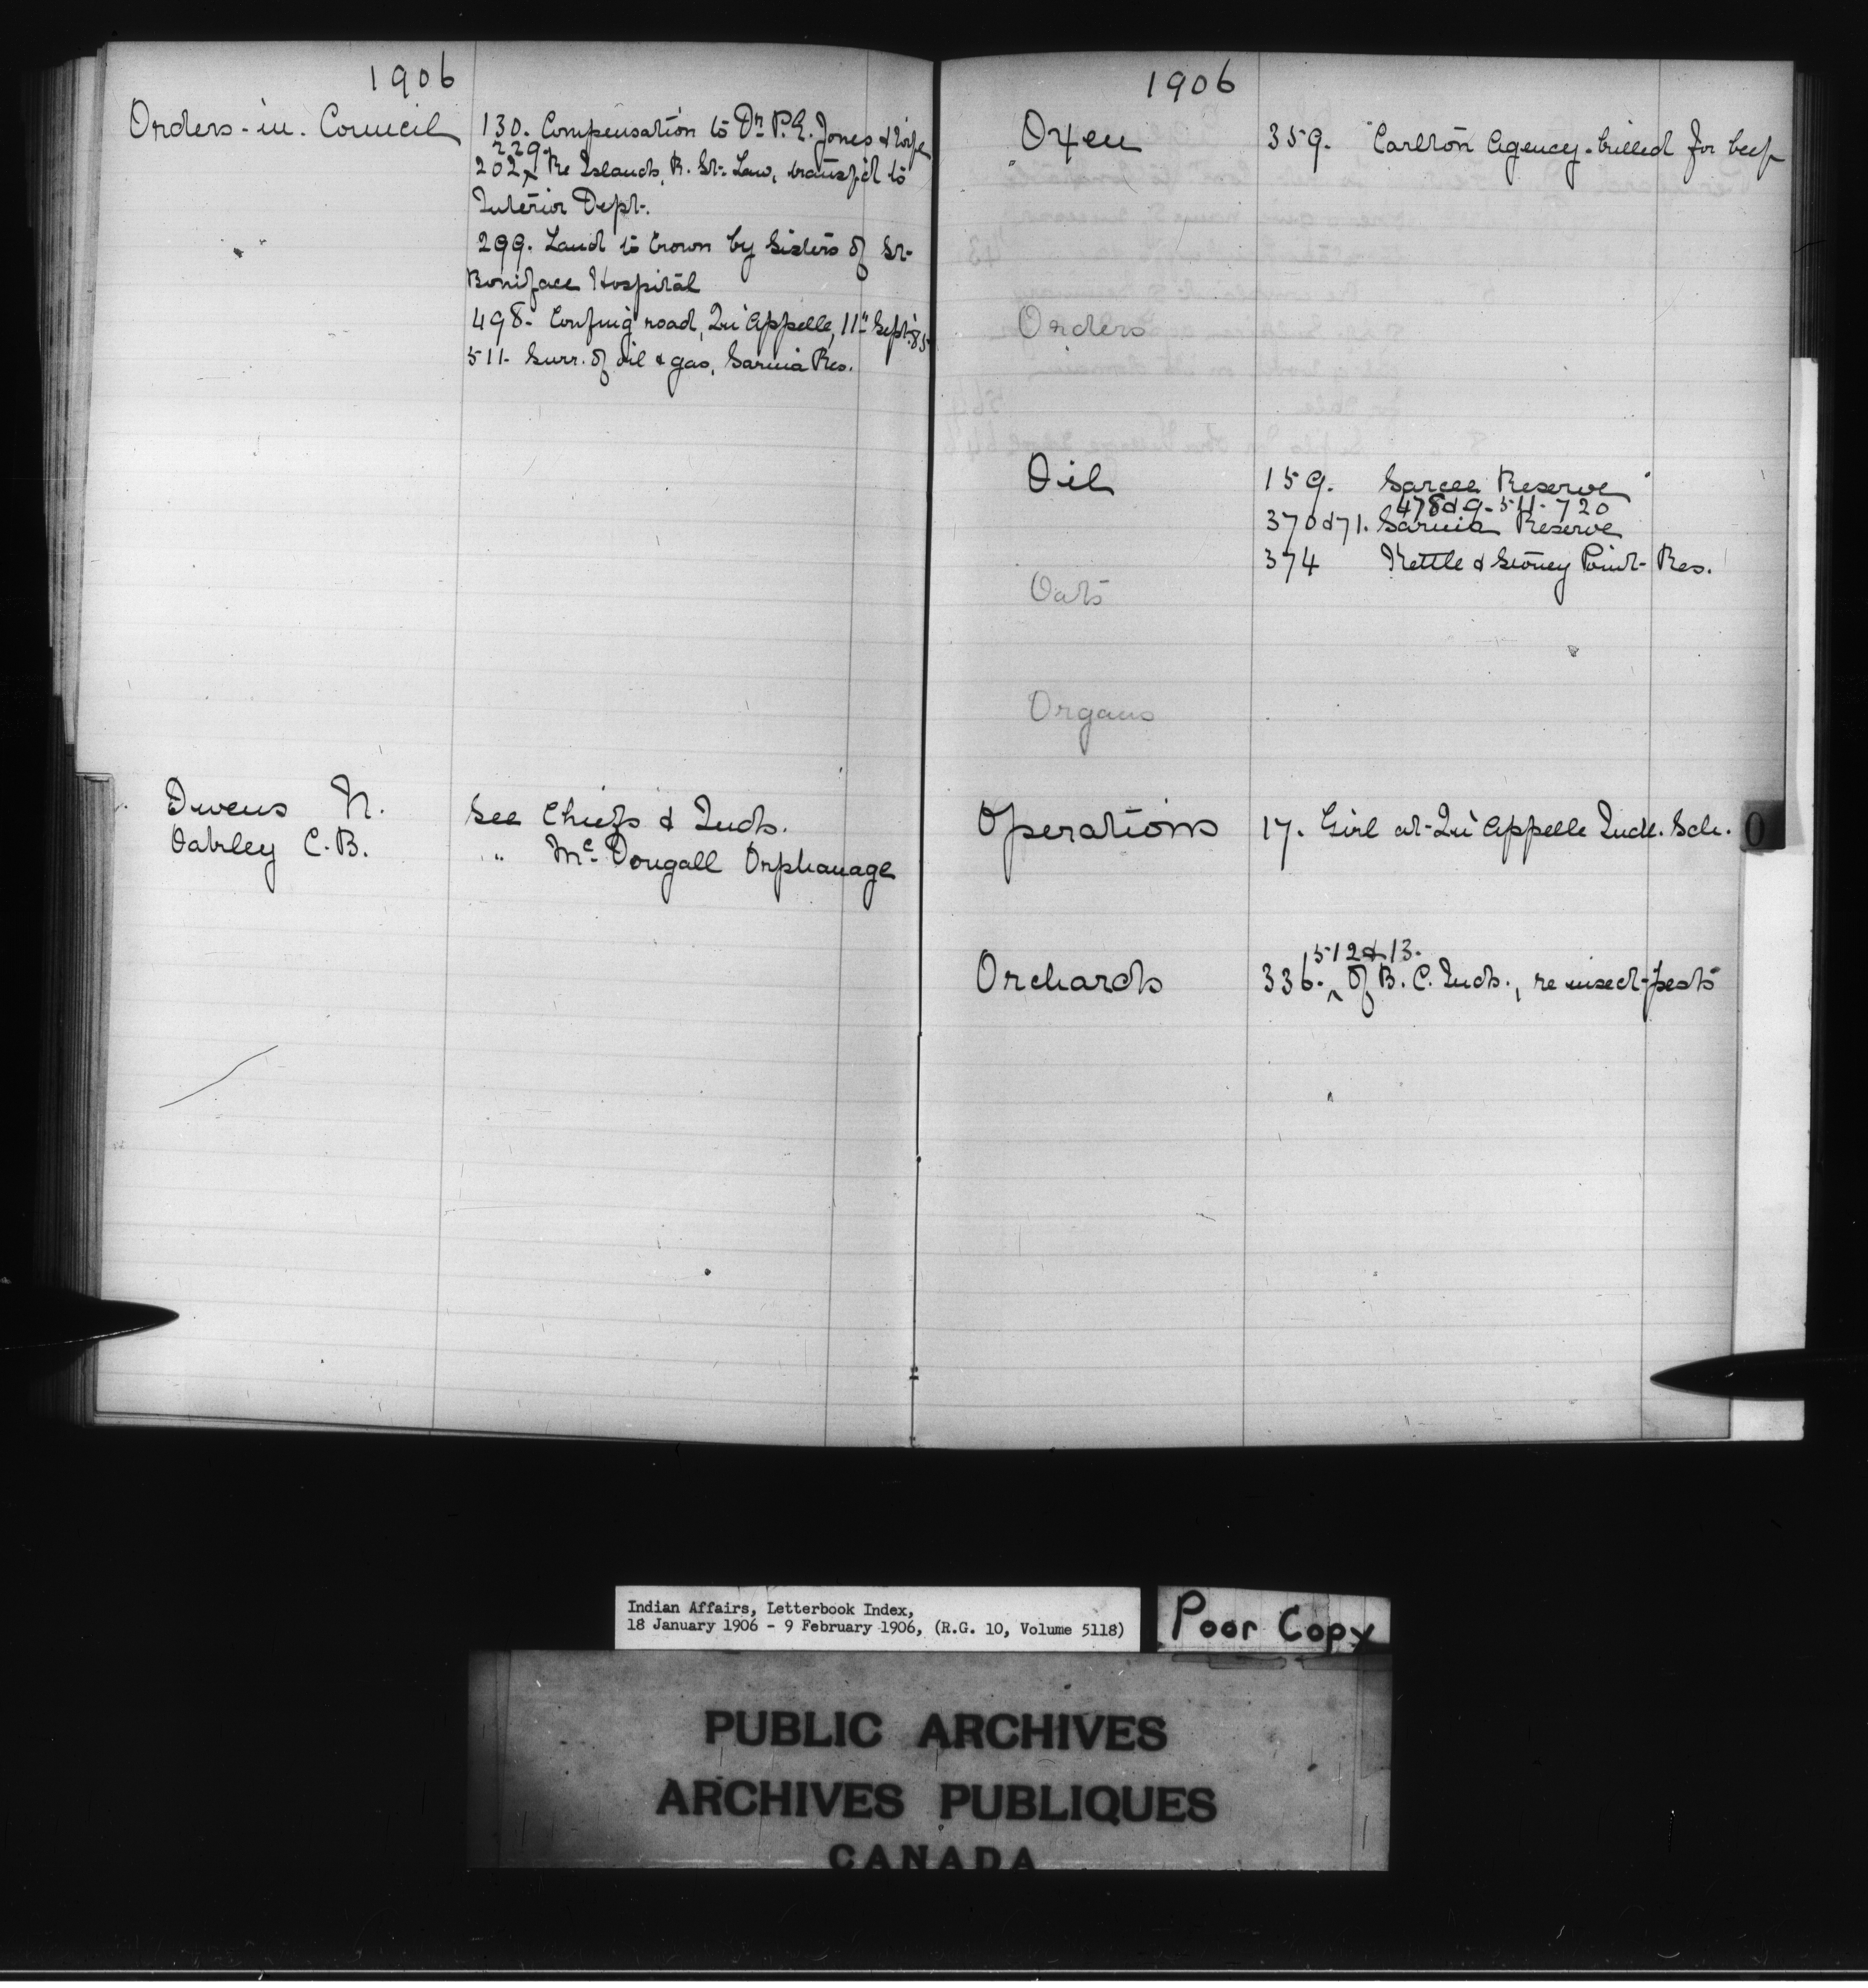 1906
Orders-in-Council
130. Compensation to Dr. P.E. Jones & wife
229.
202^ Re Islands, R. St. Law, transf'd to
Interior Dept.
299. Land to Crown by Sisters of St.
Boniface Hospital
498. Confing road, Qu'Appelle, 11" Sept.
511. Surr. of oil & gas, Sarnia Res.
Owens N. See Chiefs & Inds.
Oakley C.B. " McDougall Orphanage
1906
Oxen 359. Carlton Agency. killed for beef
Orders
Oil 159. Sarcee Reserve
478 & 9. 511. 720
370 & 71. Sarnia Reserve
374 Kettle & Stoney Point Res.
Oats
Organs
Operations 17. Girl at Qu'Appelle Indl. Sch.
O
512 & 13.
Orchards 336.^ Of B.C. Inds., re insect-pests
Indian Affairs, Letterbook Index,
18 January 1906 - 9 February 1906, (R.G. 10, Volume 5118)
Poor Copy
PUBLIC ARCHIVES
ARCHIVES PUBLIQUES
CANADA